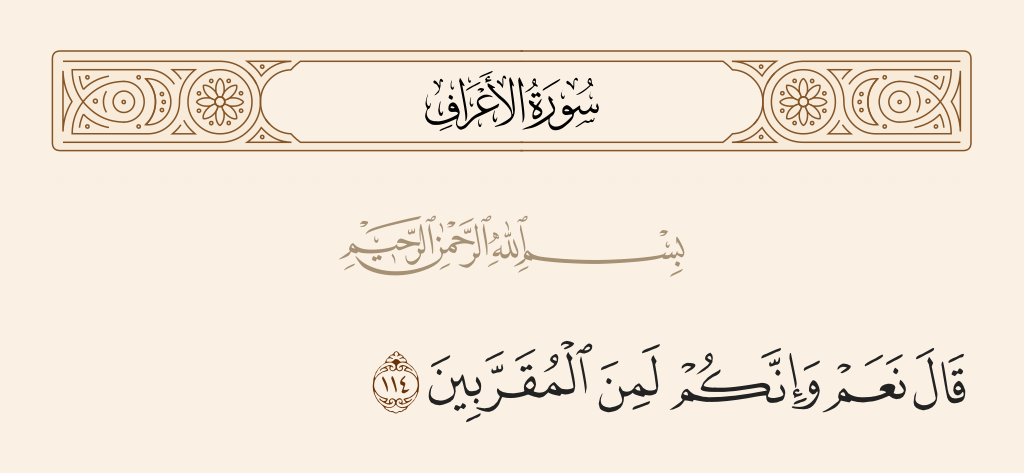 سُورَةُ الأَعْرَافِ
بِسْمِ ٱللَّهِ ٱلرَّحْمَٰنِ ٱلرَّحِيمِ
قَالَ نَعَمْ وَإِنَّكُمْ لَمِنَ ٱلْمُقَرَّبِينَ ١١٤